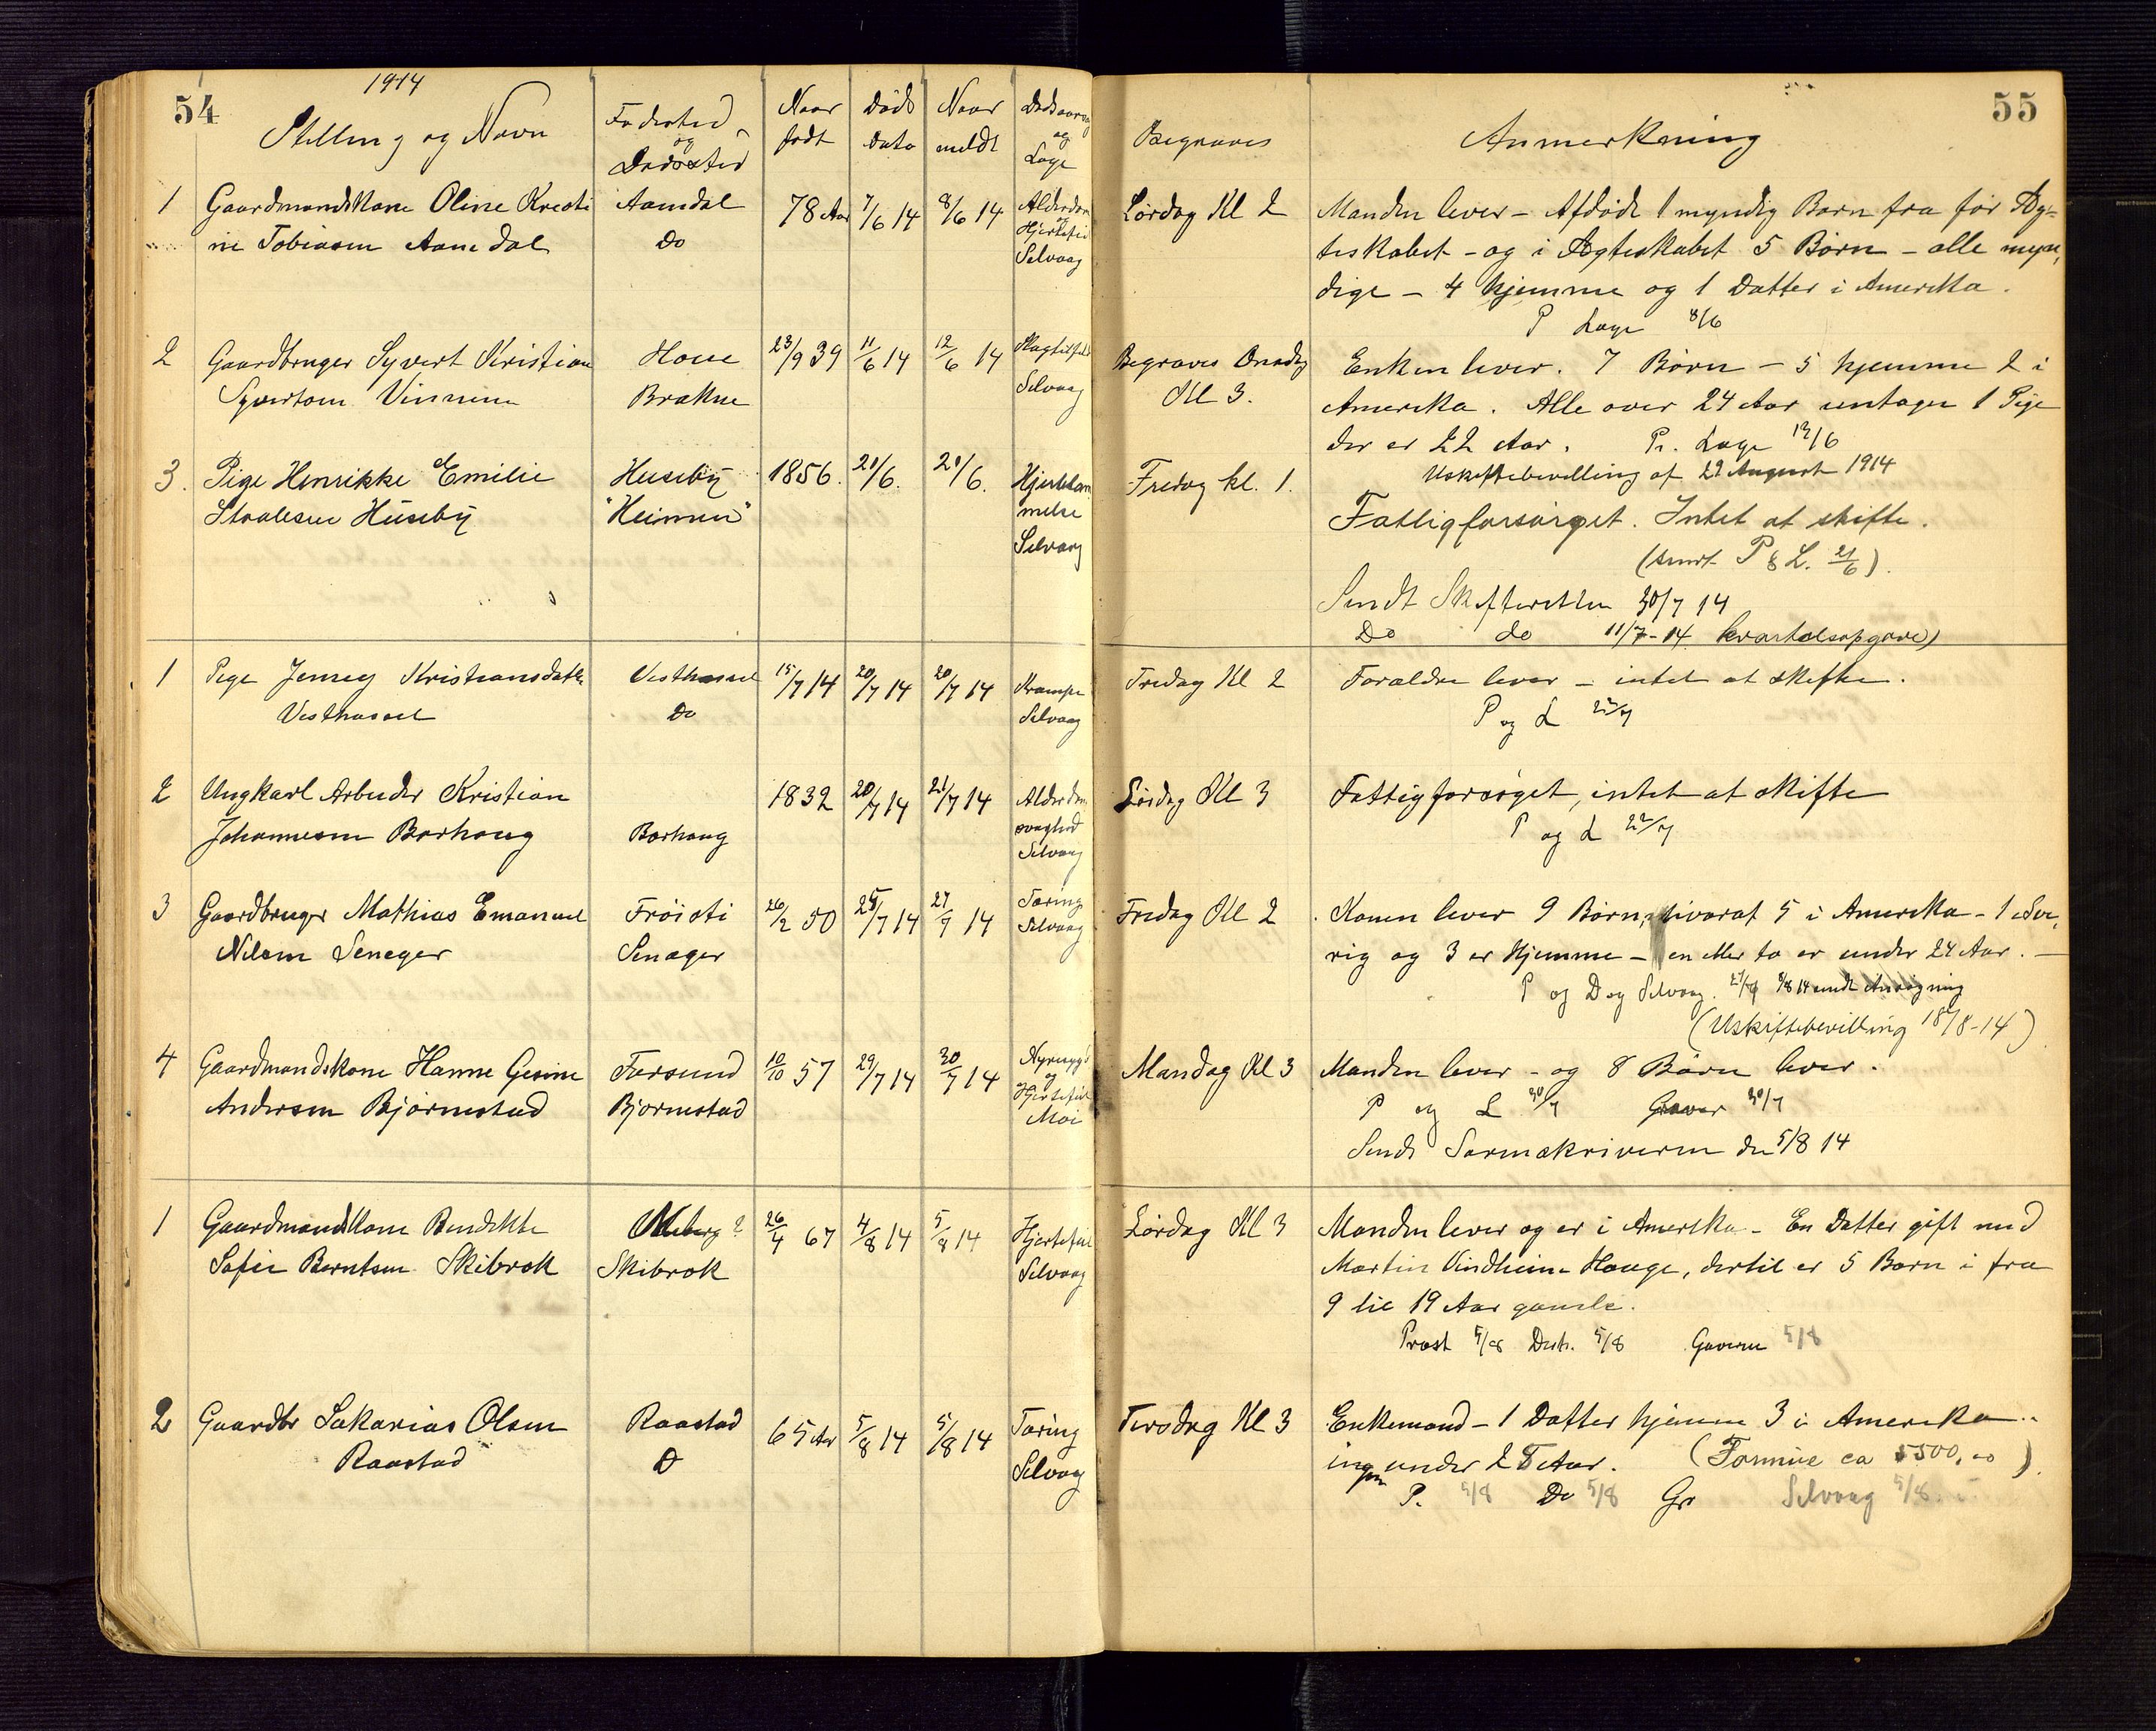 54
1914
Stilling og Navn
Fødested
og
Dødssted
Naar
født
Døds
dato
Naar
meldt
Dødsaarsag
og
Læge
1 Gaardmandskone Oline Kristi
ne Tobiasen Aamdal
Aamdal
Do
78 Aar
7/6 14
8/6 14
Alderdom
og
Hjertefeil
Selvaag
2 Gaardbruger Syvert Kristian
Syvertsen Vinnem
Houe
Brækne
23/9 39
11/6 14
12/6 14
Selvaag
3. Pige Henrikke Emilie
Staalesen Huseby
Huseby
"Heimen"
1856.
21/6.
21/6.
Hjertelam
melse
Selvaag
1 Pige Jenny Kristiansdatter
Vesthassel
Vesthassel
Do
15/7 14
20/7 14
20/7 14
Krampe
Selvaag
2 Ungkarl Arbeider Kristian
Johannesen Borhaug
Borhaug
1832
20/7 14
21/7 14
Alderdoms
svaghed
Selvaag
3 Gaardbruger Mathias Emanuel
Nilsen Seneger
Frøisti
Senæger
26/2 50
25/7 14
27/7 14
Tæring
Selvaag
4 Gaardmandskone Hanne Gesine
Andersen Bjørnestad
Farsund
Bjørnestad
10/10 57
29/7 14
30/7 14
Nyresyge
og
Hjertefeil
Moi
1 Gaardmandskone Bendikte
Sofie Berntsen Skibrok
Skibrok
26/4 67
4/8 14
5/8 14
Hjertefeil
Selvaag
2 Gaardbr Sakarias Olsen
Raastad
Raastad
D
65 Aar
5/8 14
5/8 14
Tæring
Selvaag
55
Begraves
Anmerkning
Lørdag Kl 2
Manden lever - Afdøde 1 myndig Barn fra før Æg-
teskabet - og i Ægteskabet 5 Børn - alle myn,
dige - 4 hjemme og 1 Datter i Amerika.
P Læge 8/6
Begraves Onsdag
Kl 3.
Enken lever. 7 Børn - 5 hjemme 2 i
Amerika. Alle over 24 Aar untagen 1 Pige
der er 22 Aar. Pr. Læge 12/6
Uskiftebevilling af 22 August 1914
Fredag kl. 1.
Fattigforsørget. Intet at skifte.
(sendt P & L. 21/6).
Sendt Skifteretten 30/7 14
Do do 11/7-14 kvartalsopgave)
Fredag Kl 2
Forældre lever - intet at skifte.
P og L
Lørdag Kl 3
Fattigforsøget, intet at skifte
P og L 22/7
Fredag Kl 2
Konen lever 9 Børn, hvoraf 5 i Amerika - 1 i Sve,
rig og 3 er hjemme - en eller to er under 24 Aar. -
P og D og Selvaag. 27/7 8/8 14 sendt Ansøgning
(Uskiftebevilling 18/8-14)
Mandag Kl 3
Manden lever - og 8 Børn lever.
P og L 30/7 Graver 30/7
Sendt Sorenskriveren den 5/8 14
Lørdag Kl 3
Manden lever og er i Amerika - En Datter gift med
Martin Vindheim Hauge, dertil er 5 Børn i fra
9 til 19 Aar gamle.
Prost 5/8 Distr. 5/8 Graveren 5/8
Tirsdag Kl 3
Enkemand - 1 Datter hjemme 3 i Amerika -
ingen under 28 Aar. (Formue ca 5500,00)
P. 5/8 Do 5/8 Gr Selvaag 5/8.